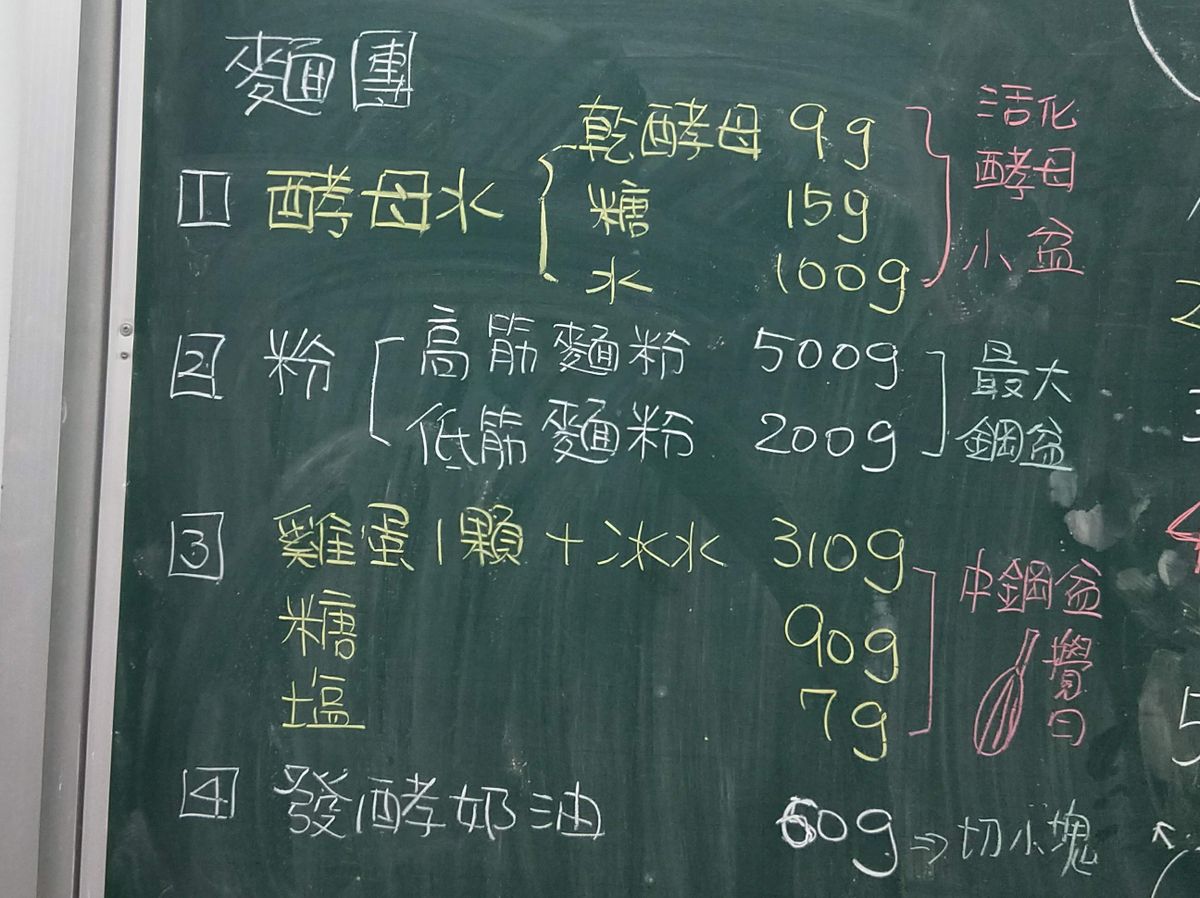 麵團
1 酵母水 乾酵母 9g 活化
糖 15g 酵母
水 100g 小盆
2 粉 高筋麵粉 500g 最大
低筋麵粉 200g 鋼盆
3 雞蛋1顆+冰水 310g 中鋼盆
糖 90g 攪
塩 7g 勻
4 發酵奶油 60g⇒切小塊